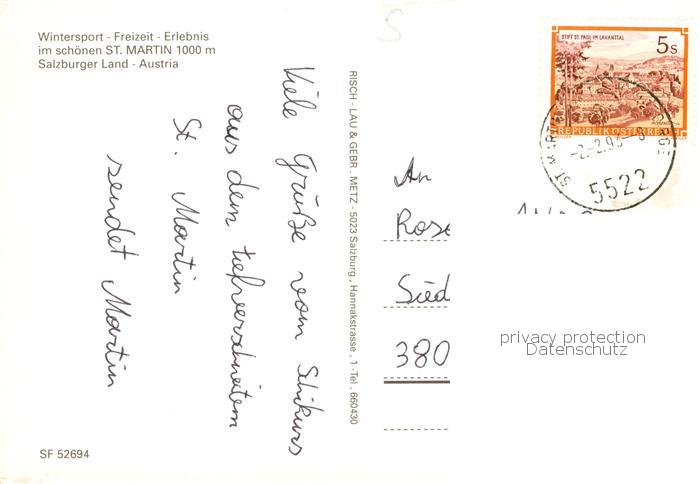 Wintersport - Freizeit - Erlebnis
im schönen ST. MARTIN 1000 m
Salzburger Land - Austria
Viele Grüße vom Schikurs
aus dem tiefverschneitem
St. Martin
sendet Martin
SF 52694
RISCH - LAU & GEBR. METZ - 5023 Salzburg, Hannakstrasse, 1 - Tel. 660430
STIFT ST. PAUL IM LAVANTTAL
5s
REPUBLIK ÖSTERREICH
5522
An
Rose
Sied
380
privacy protection
Datenschutz